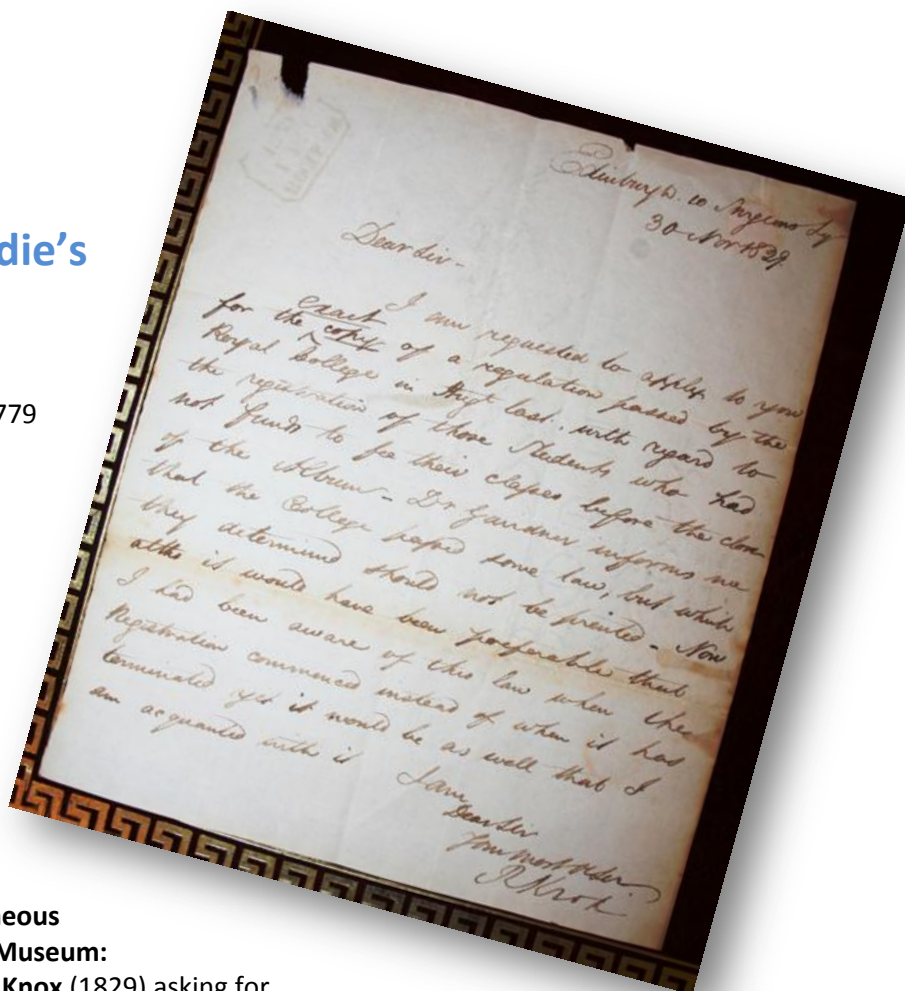 die's
779
Edinburgh. 10 Surgeons Sq
30 Nov 1829
Dear Sir -
I am requested to apply to you
for the exact copy of a regulation passed by the
Royal College in Augt last. with regard to
the registration of those Students who had
not funds to fee their classes before the close
of the Album - Dr Gardner informs me
that the College passed some law, but which
they determined should not be printed - Now
altho it would have been preferable that
I had been aware of this law when the
Registration commenced instead of when it has
terminated yet it would be as well that I
am acquanted with it
I am
Dear Sir
Your most obdr.
R Knox
neous
Museum:
Knox (1829) asking for